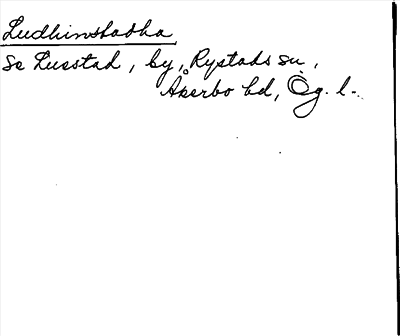 Ludhinstadha
Se Lusstad, by, Rystads sn,
Åkerbo hd, Ög. l.